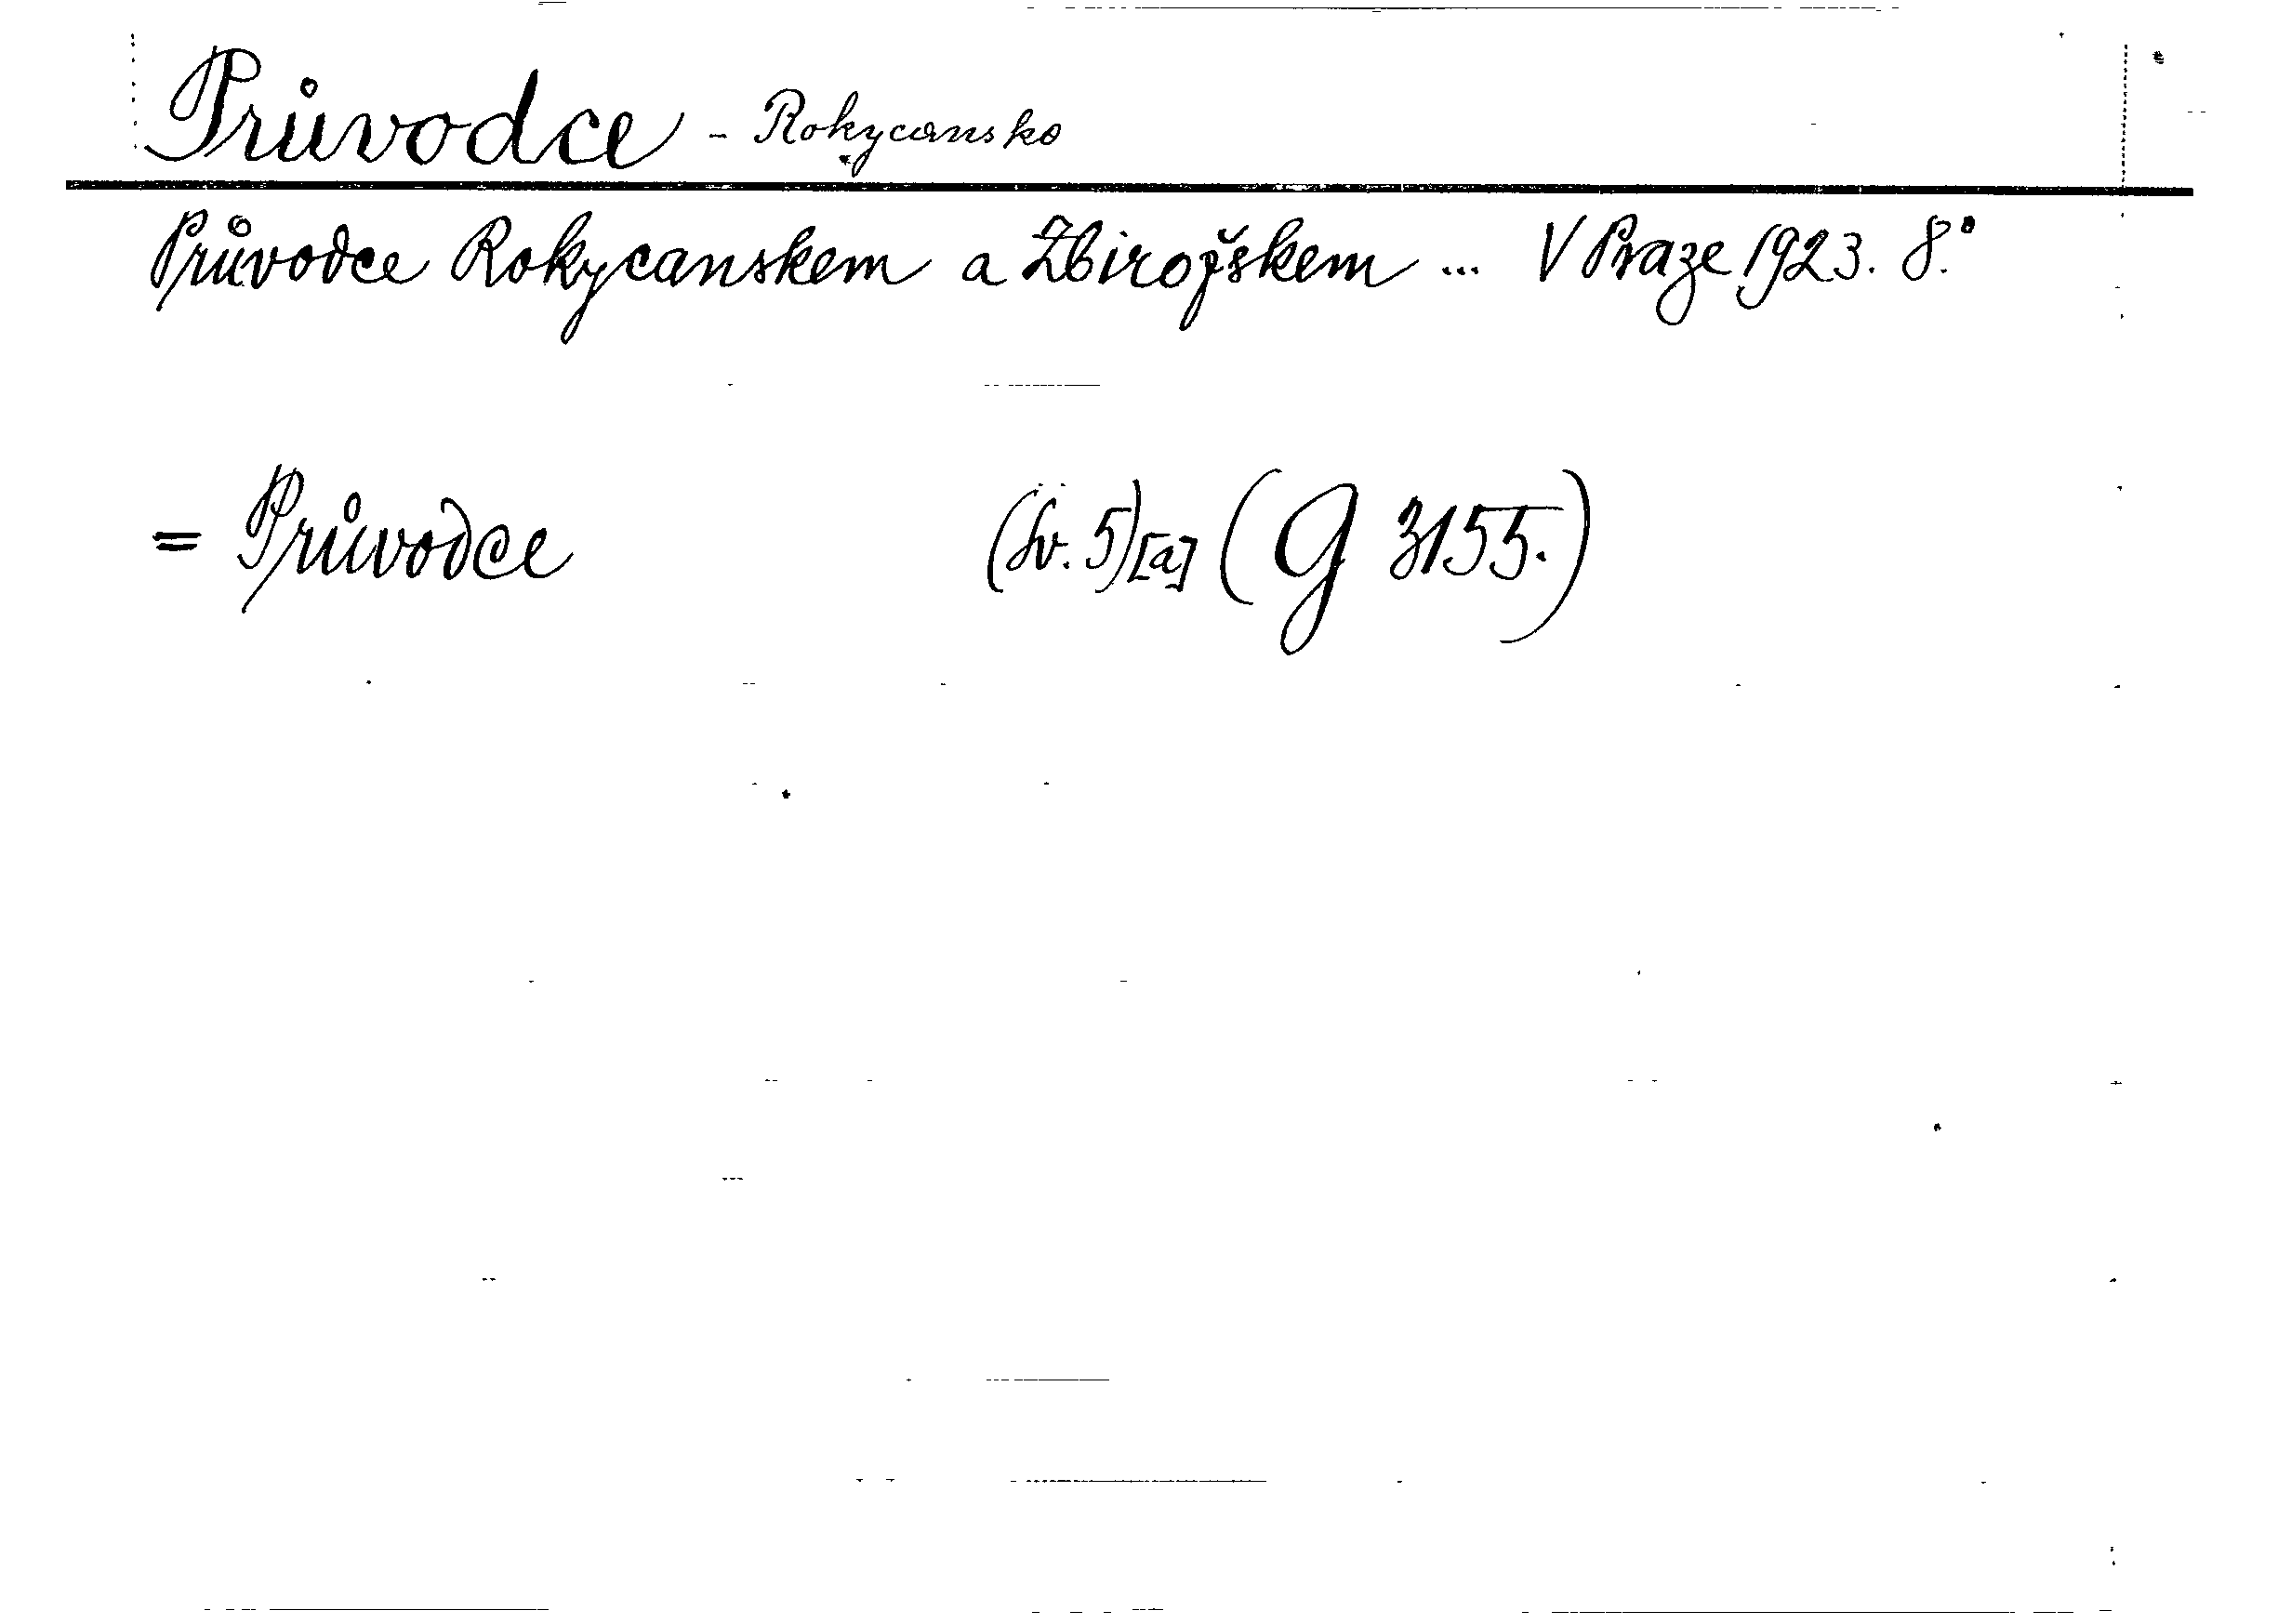 Průvodce - Rokycansko
Průvodce Rokycanskem a Zbirožskem ... V Praze 1923. 8.°
= Průvodce (Sv. 5)[a] (G 3155.)